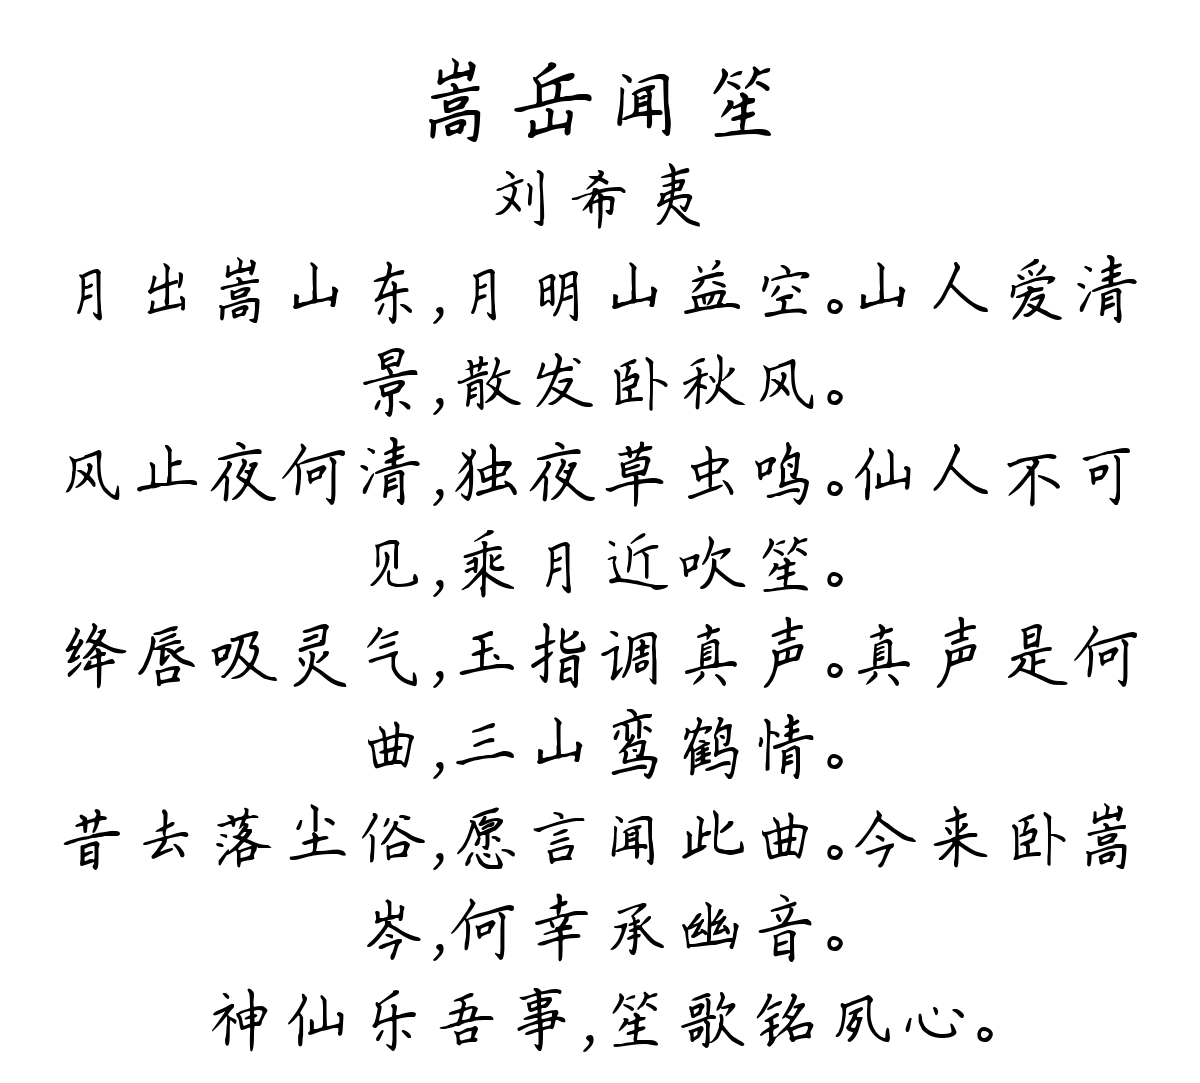 嵩岳闻笙
刘希夷
月出嵩山东,月明山益空。山人爱清
景,散发卧秋风。
风止夜何清,独夜草虫鸣。仙人不可
见,乘月近吹笙。
绛唇吸灵气,玉指调真声。真声是何
曲,三山鸾鹤情。
昔去落尘俗,愿言闻此曲。今来卧嵩
岑,何幸承幽音。
神仙乐吾事,笙歌铭夙心。